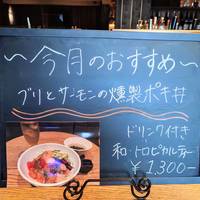 ～今月のおすすめ～
ブリとサーモンの燻製ポキ丼
ドリンク付き
和・トロピカルティー
￥1,300-